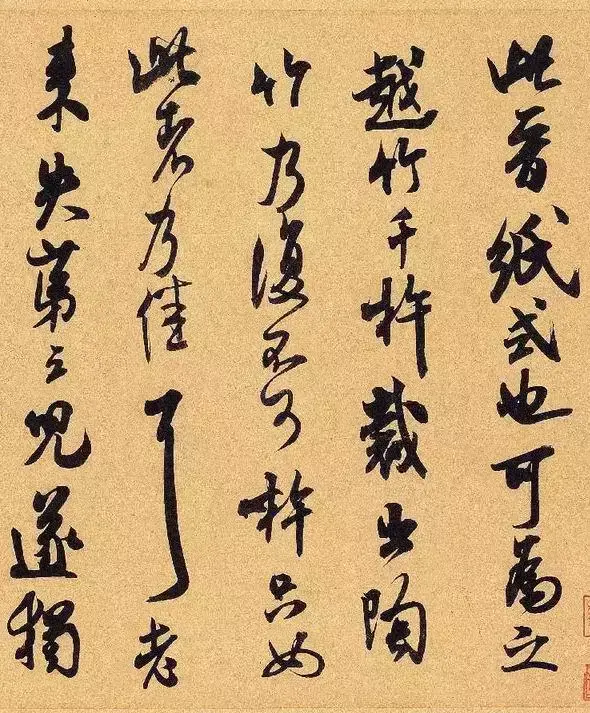 此晉紙式也可為之
越竹千杵裁出陶
竹乃復不可杵只如
此者乃佳耳老
來失第三兒遂獨